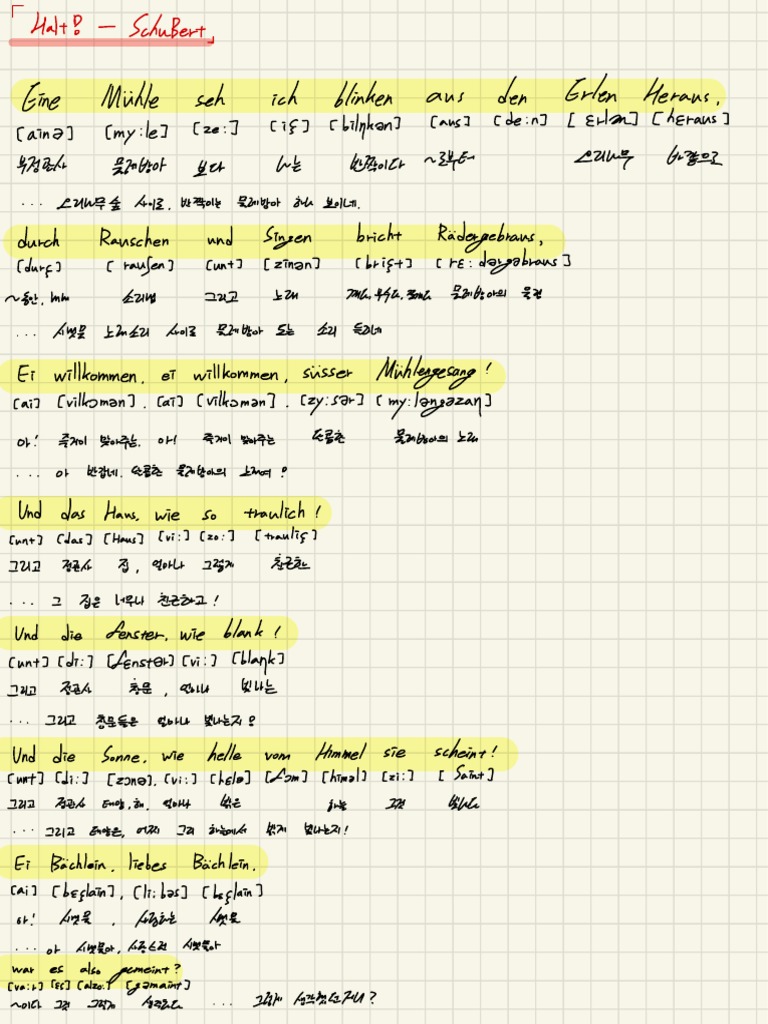 「Halt! - Schubert」
Eine Mühle seh ich blinken aus den Erlen Heraus,
[aīnə] [my:le] [ze:] [iç] [bliŋkən] [aus] [de:n] [ɛrlən] [hɛraus]
부정관사 물레방아 보다 나는 반짝이다 ~로부터 오리나무 바깥으로
... 오리나무숲 사이로, 반짝이는 물레방아 하나 보이네.
durch Rauschen und Singen bricht Rädergebraus,
[durç] [rauʃen] [unt] [zīŋən] [briçt] [rɛ:dərgəbraus]
~동안, 소리냄 그리고 노래 물레방아의
... 시냇물 노래소리 사이로 물레방아 도는 소리 들리네
Ei willkommen, ei willkommen, süsser Mühlengesang!
[ai] [vilkɔmən], [aī] [vilkɔmən], [zy:sər] [my:ləngəzaŋ]
아! 즐거이 맞아주는, 아! 즐거이 맞아주는 달콤한 물레방아의 노래
... 아 반갑네, 달콤한 물레방아의 노래여?
Und das Haus, wie so traulich!
[unt] [das] [Haus] [vi:] [zo:] [trauliç]
그리고 정관사 집, 얼마나 그렇게 친근한
... 그 집은 너무나 친근하고!
Und die fenster, wie blank!
[unt] [di:] [fɛnstər] [vi:] [blaŋk]
그리고 정관사 창문, 얼마나 빛나는
... 그리고 창문들은 얼마나 빛나는지?
Und die Sonne, wie helle vom Himmel sie scheint!
[unt] [di:] [zɔnə], [vi:] [hɛlə] [fɔm] [himəl] [zi:] [ʃaint]
그리고 정관사 태양,해, 얼마나 밝은 하늘 그것 빛나다
... 그리고 태양은, 어찌 그리 하늘에서 밝게 빛나는지!
Ei Bächlein, liebes Bächlein,
[ai] [bɛçlaīn], [li:bəs] [bɛçlaīn]
아! 시냇물, 사랑하는 시냇물
... 아 시냇물아, 사랑스런 시냇물아
war es also gemeint?
[va:r] [ɛs] [alzo:] [gəmaint]
~이다 그것 그렇게 생각된다 ... 그렇게 생각했던거니?